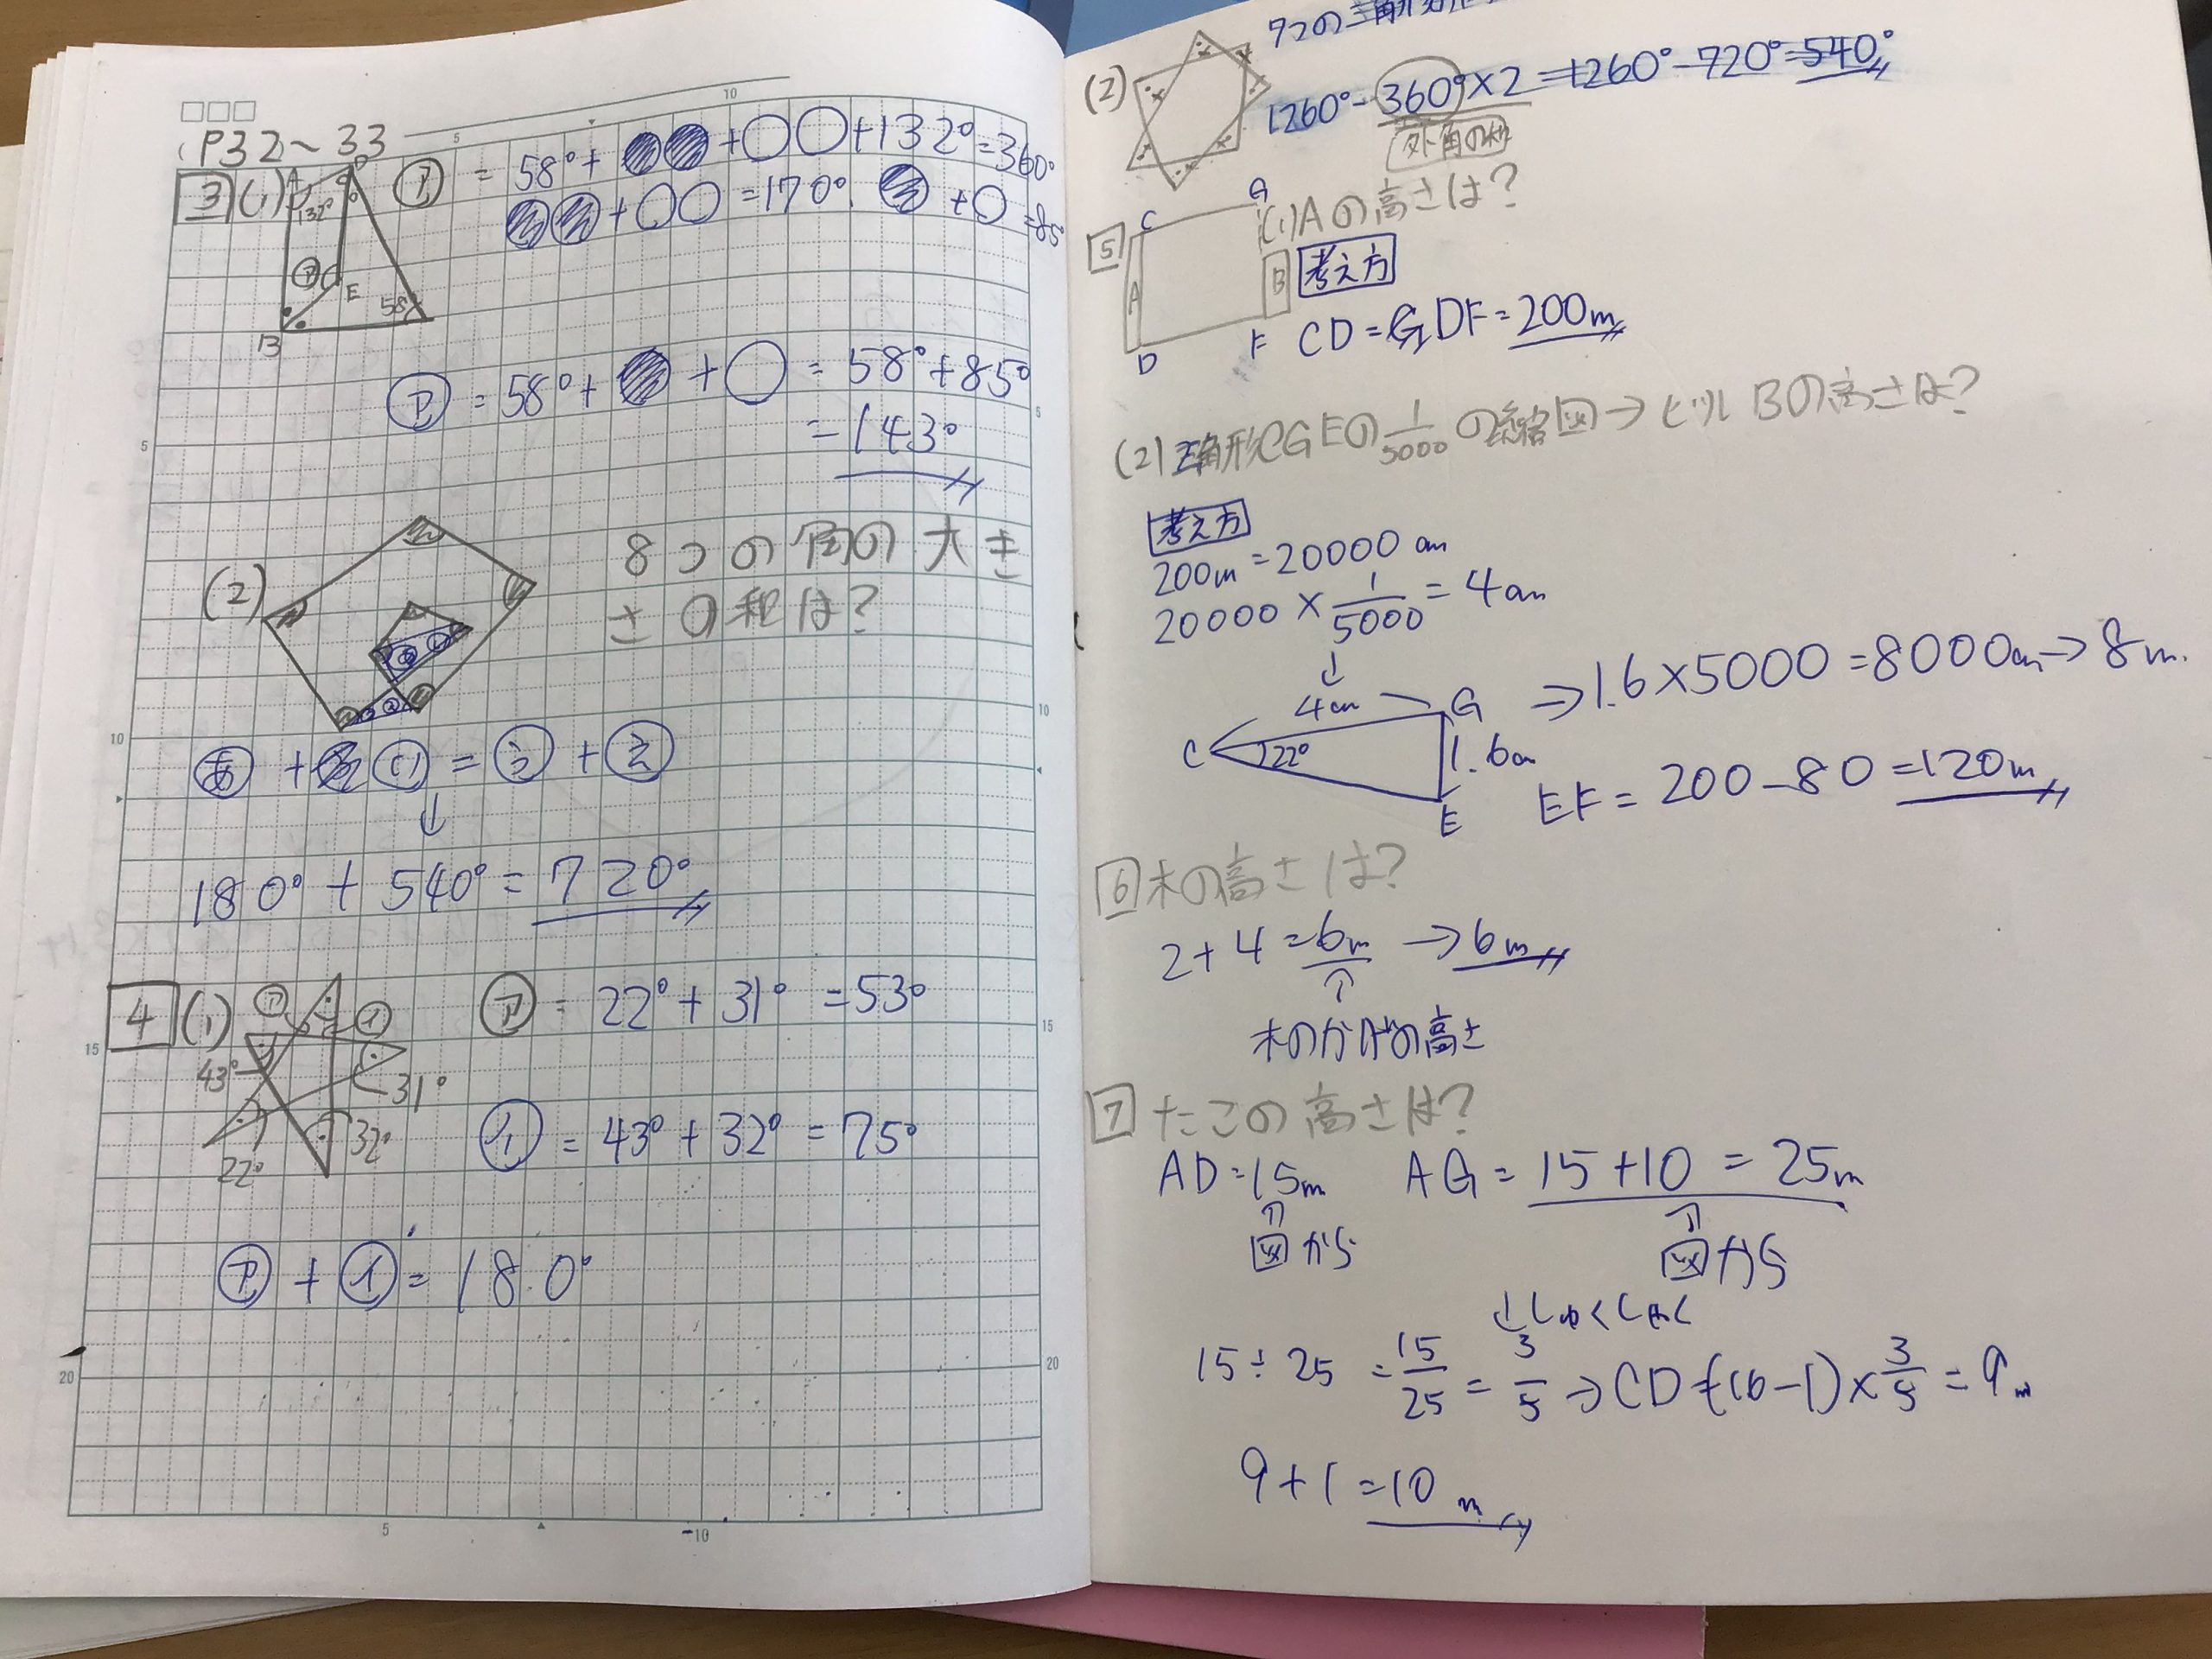 P32～33
3 (1) ㋐ = 58°+●●+○○+132°=360°
●●+○○=170° ●+○=85°
132°
㋐
E
58°
B
㋐=58°+●+○=58°+85°
=143°
(2) 8つの角の大き
さの和は?
あ+い=う+え
↓
180°+540°=720°
4 (1) ㋐ ㋑
43°
31°
32°
22°
㋐=22°+31°=53°
㋑=43°+32°=75°
㋐+㋑=180°
7つの三角形
(2) 1260°-360°×2=1260°-720°=540°
外角の和
5 C G
A B
D F
(1)Aの高さは?
考え方
CD=GDF=200m
(2)三角形CGEの1/5000の縮図→ビルBの高さは?
考え方
200m=20000cm
20000×1/5000=4cm
↓
4cm
C 22° G
1.6cm
E
⇒1.6×5000=8000cm→8m.
EF=200-80=120m
6 木の高さは?
2+4=6m→6m
↑
木のかげの高さ
7 たこの高さは?
AD=15m AG=15+10=25m
↑ ↑
図から 図から
↓しゅくしゃく
15÷25=15/25=3/5→CD=(16-1)×3/5=9m
9+1=10m